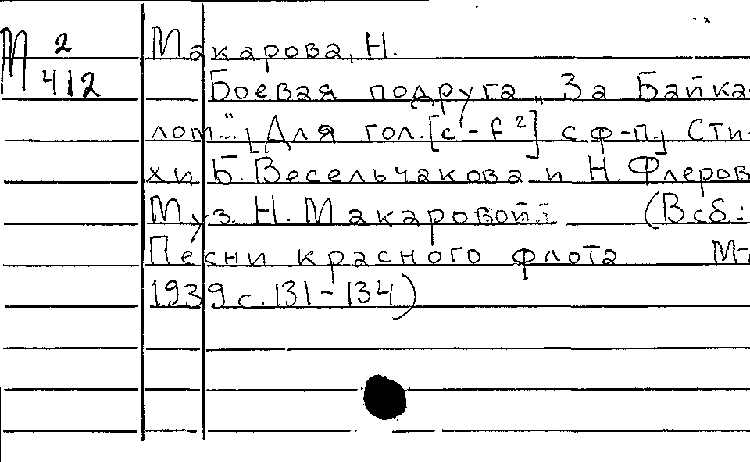 М 2
412
Макарова, Н.
Боевая подруга „За Байка-
лом..." [Для гол. [c¹-f²] с ф-п.] Сти-
хи Б. Весельчакова и Н. Флеров
Муз. Н. Макаровой. (В сб.:
Песни красного флота М-
1939 с. 131-134)